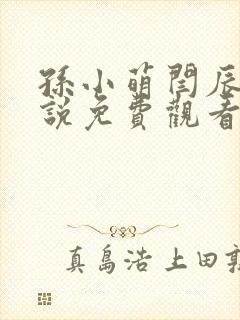 孫小萌閆辰
說免費觀看
真島浩上田敦